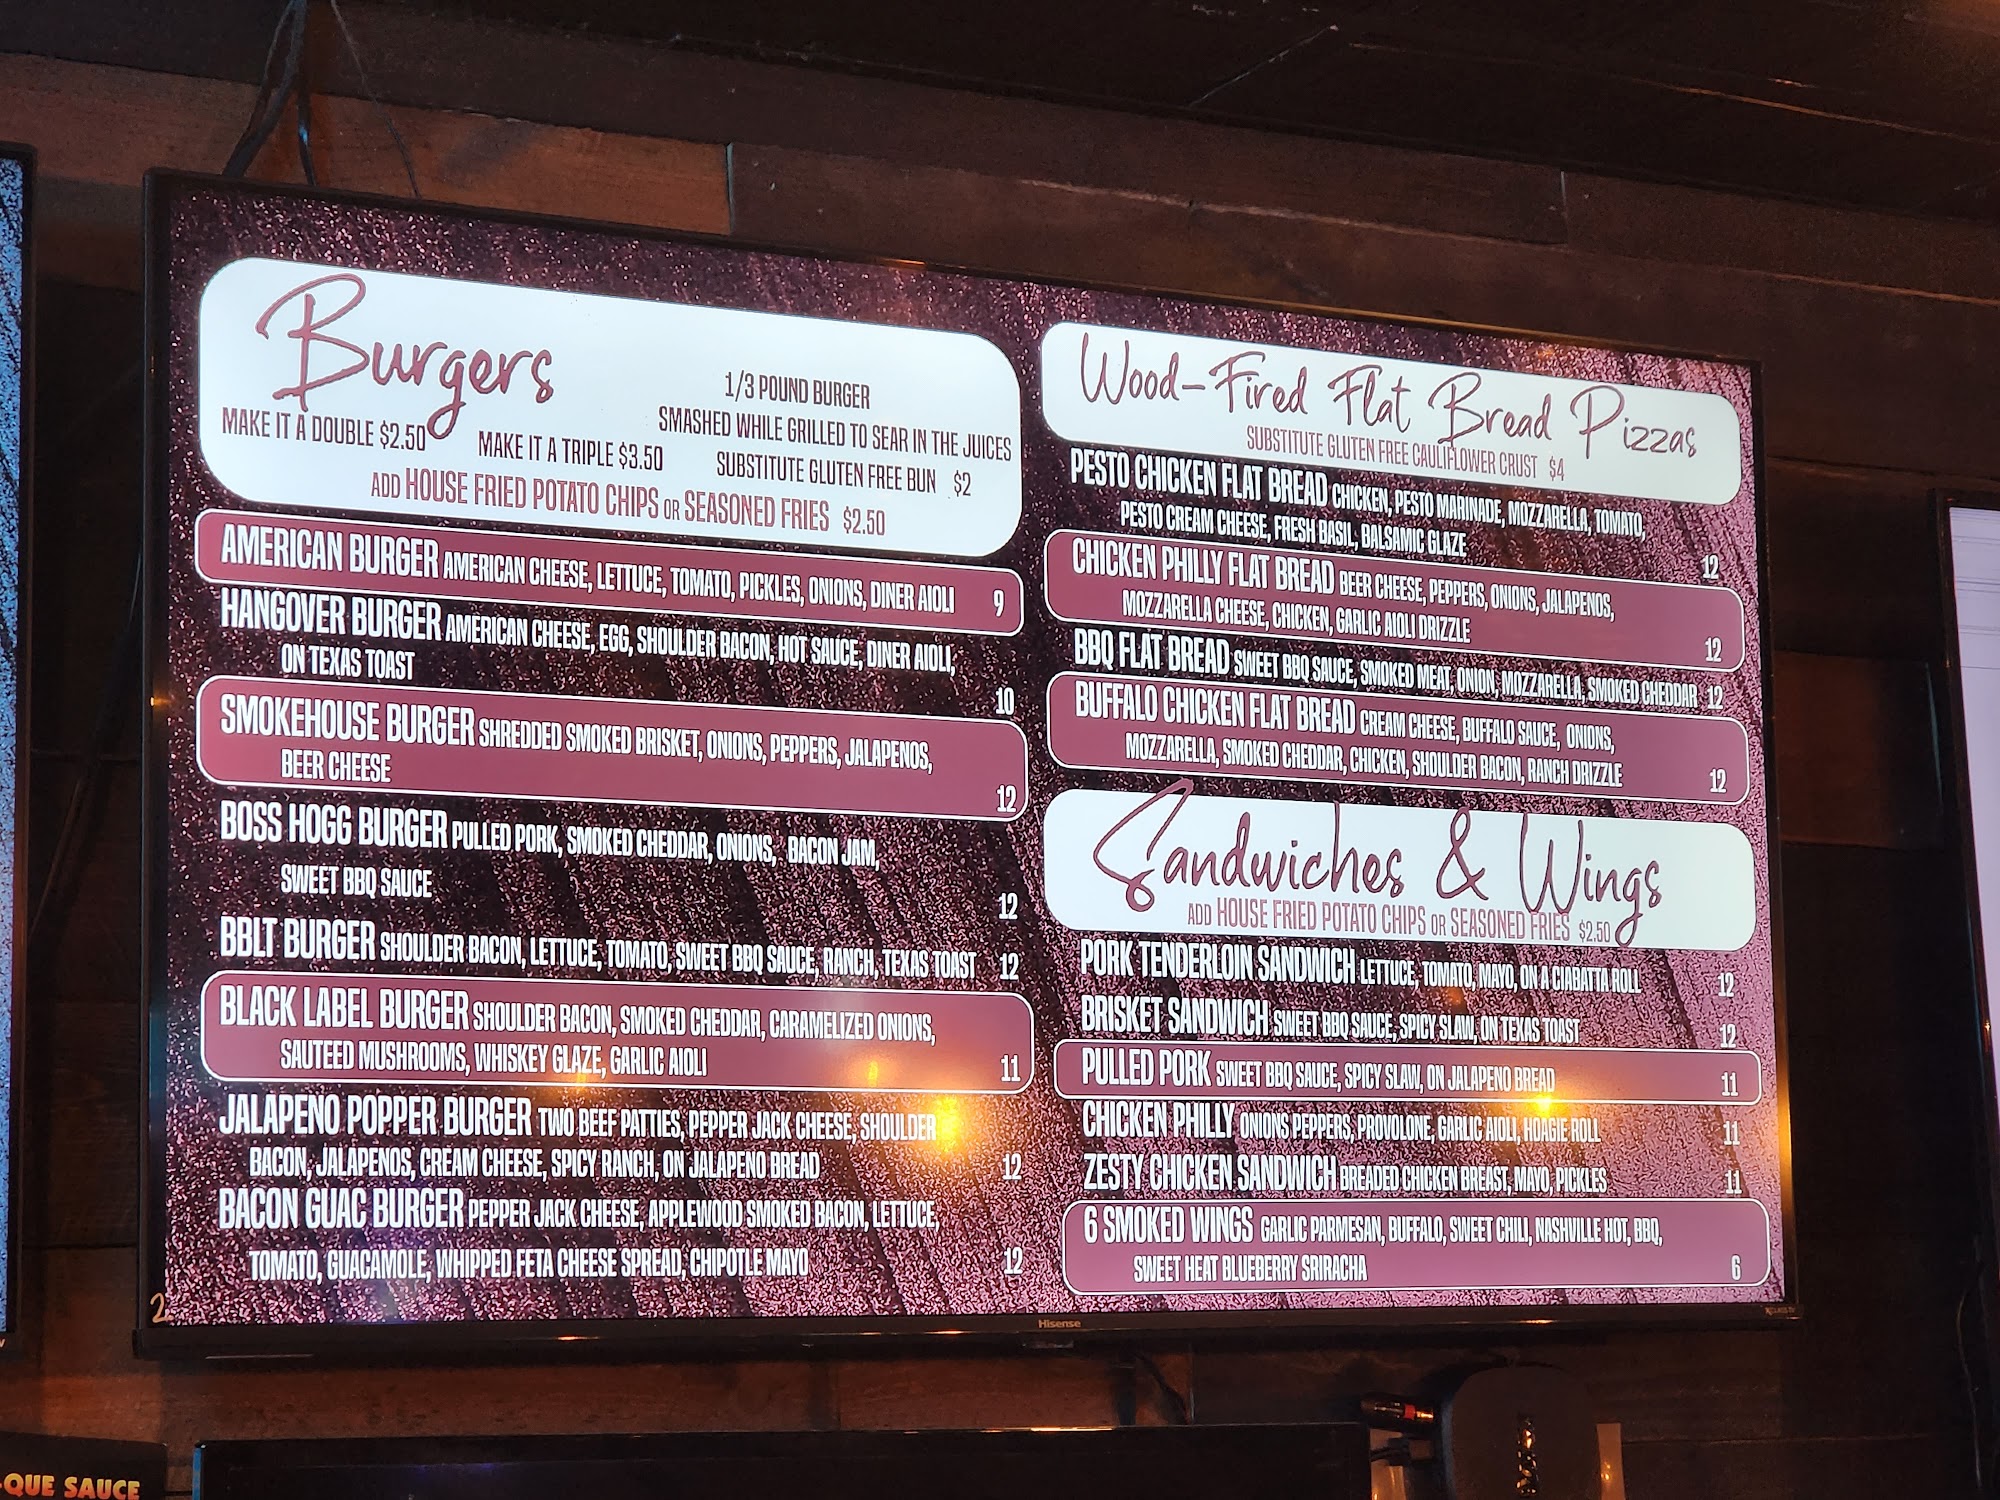 Burgers
1/3 POUND BURGER
SMASHED WHILE GRILLED TO SEAR IN THE JUICES
MAKE IT A DOUBLE $2.50
MAKE IT A TRIPLE $3.50
SUBSTITUTE GLUTEN FREE BUN $2
ADD HOUSE FRIED POTATO CHIPS OR SEASONED FRIES $2.50
AMERICAN BURGER AMERICAN CHEESE, LETTUCE, TOMATO, PICKLES, ONIONS, DINER AIOLI 9
HANGOVER BURGER AMERICAN CHEESE, EGG, SHOULDER BACON, HOT SAUCE, DINER AIOLI,
ON TEXAS TOAST 10
SMOKEHOUSE BURGER SHREDDED SMOKED BRISKET, ONIONS, PEPPERS, JALAPENOS,
BEER CHEESE 12
BOSS HOGG BURGER PULLED PORK, SMOKED CHEDDAR, ONIONS, BACON JAM,
SWEET BBQ SAUCE 12
BBLT BURGER SHOULDER BACON, LETTUCE, TOMATO, SWEET BBQ SAUCE, RANCH, TEXAS TOAST 12
BLACK LABEL BURGER SHOULDER BACON, SMOKED CHEDDAR, CARAMELIZED ONIONS,
SAUTEED MUSHROOMS, WHISKEY GLAZE, GARLIC AIOLI 11
JALAPENO POPPER BURGER TWO BEEF PATTIES, PEPPER JACK CHEESE, SHOULDER
BACON, JALAPENOS, CREAM CHEESE, SPICY RANCH, ON JALAPENO BREAD 12
BACON GUAC BURGER PEPPER JACK CHEESE, APPLEWOOD SMOKED BACON, LETTUCE,
TOMATO, GUACAMOLE, WHIPPED FETA CHEESE SPREAD, CHIPOTLE MAYO 12
Wood-Fired Flat Bread Pizzas
SUBSTITUTE GLUTEN FREE CAULIFLOWER CRUST $4
PESTO CHICKEN FLAT BREAD CHICKEN, PESTO MARINADE, MOZZARELLA, TOMATO,
PESTO CREAM CHEESE, FRESH BASIL, BALSAMIC GLAZE 12
CHICKEN PHILLY FLAT BREAD BEER CHEESE, PEPPERS, ONIONS, JALAPENOS,
MOZZARELLA CHEESE, CHICKEN, GARLIC AIOLI DRIZZLE 12
BBQ FLAT BREAD SWEET BBQ SAUCE, SMOKED MEAT, ONION, MOZZARELLA, SMOKED CHEDDAR 12
BUFFALO CHICKEN FLAT BREAD CREAM CHEESE, BUFFALO SAUCE, ONIONS,
MOZZARELLA, SMOKED CHEDDAR, CHICKEN, SHOULDER BACON, RANCH DRIZZLE 12
Sandwiches & Wings
ADD HOUSE FRIED POTATO CHIPS OR SEASONED FRIES $2.50
PORK TENDERLOIN SANDWICH LETTUCE, TOMATO, MAYO, ON A CIABATTA ROLL 12
BRISKET SANDWICH SWEET BBQ SAUCE, SPICY SLAW, ON TEXAS TOAST 12
PULLED PORK SWEET BBQ SAUCE, SPICY SLAW, ON JALAPENO BREAD 11
CHICKEN PHILLY ONIONS PEPPERS, PROVOLONE, GARLIC AIOLI, HOAGIE ROLL 11
ZESTY CHICKEN SANDWICH BREADED CHICKEN BREAST, MAYO, PICKLES 11
6 SMOKED WINGS GARLIC PARMESAN, BUFFALO, SWEET CHILI, NASHVILLE HOT, BBQ,
SWEET HEAT BLUEBERRY SRIRACHA 6
2
Hisense
-QUE SAUCE